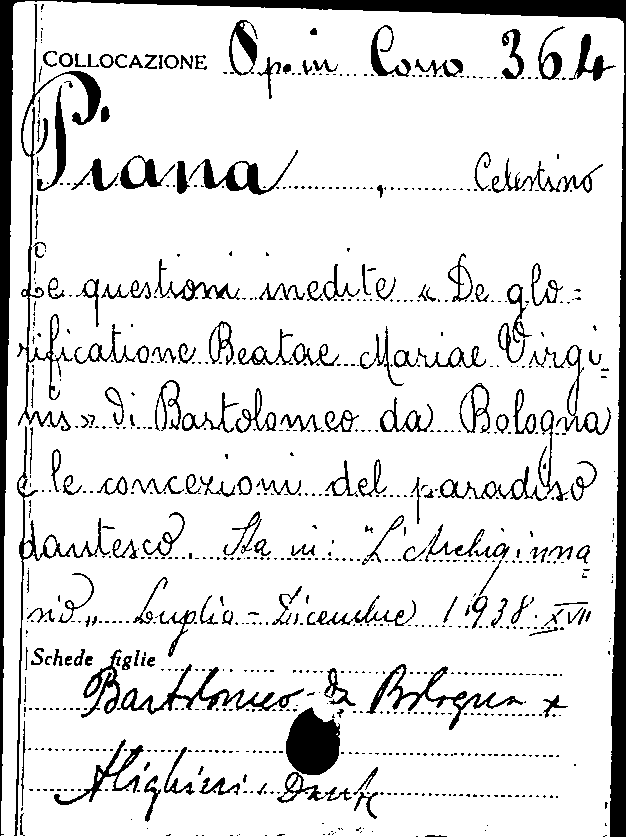 COLLOCAZIONE Op. in Corso 364
Piana, Celestino
Le questioni inedite « De glo=
rificatione Beatae Mariae Virgi=
nis » di Bartolomeo da Bologna
e le concezioni del paradiso
dantesco. Sta in: "L'Archiginna=
sio„ Luglio - Dicembre 1938. XVII
Schede figlie
Bartolomeo da Bologna x
Alighieri, Dante